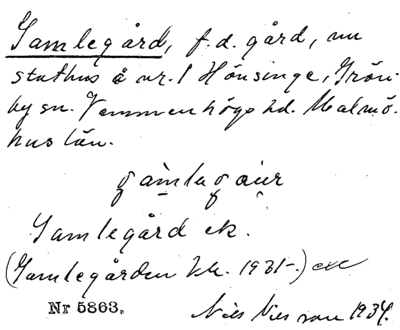 Gamlegård, f.d. gård, nu
stathus å nr. 1 Hönsinge, Grön-
by sn. Vemmenhögs hd. Malmö-
hus län.
Gamlegård ek.
(Gamlegården tk. 1931-.)
Nr 5863. Nils Nilsson 1934.